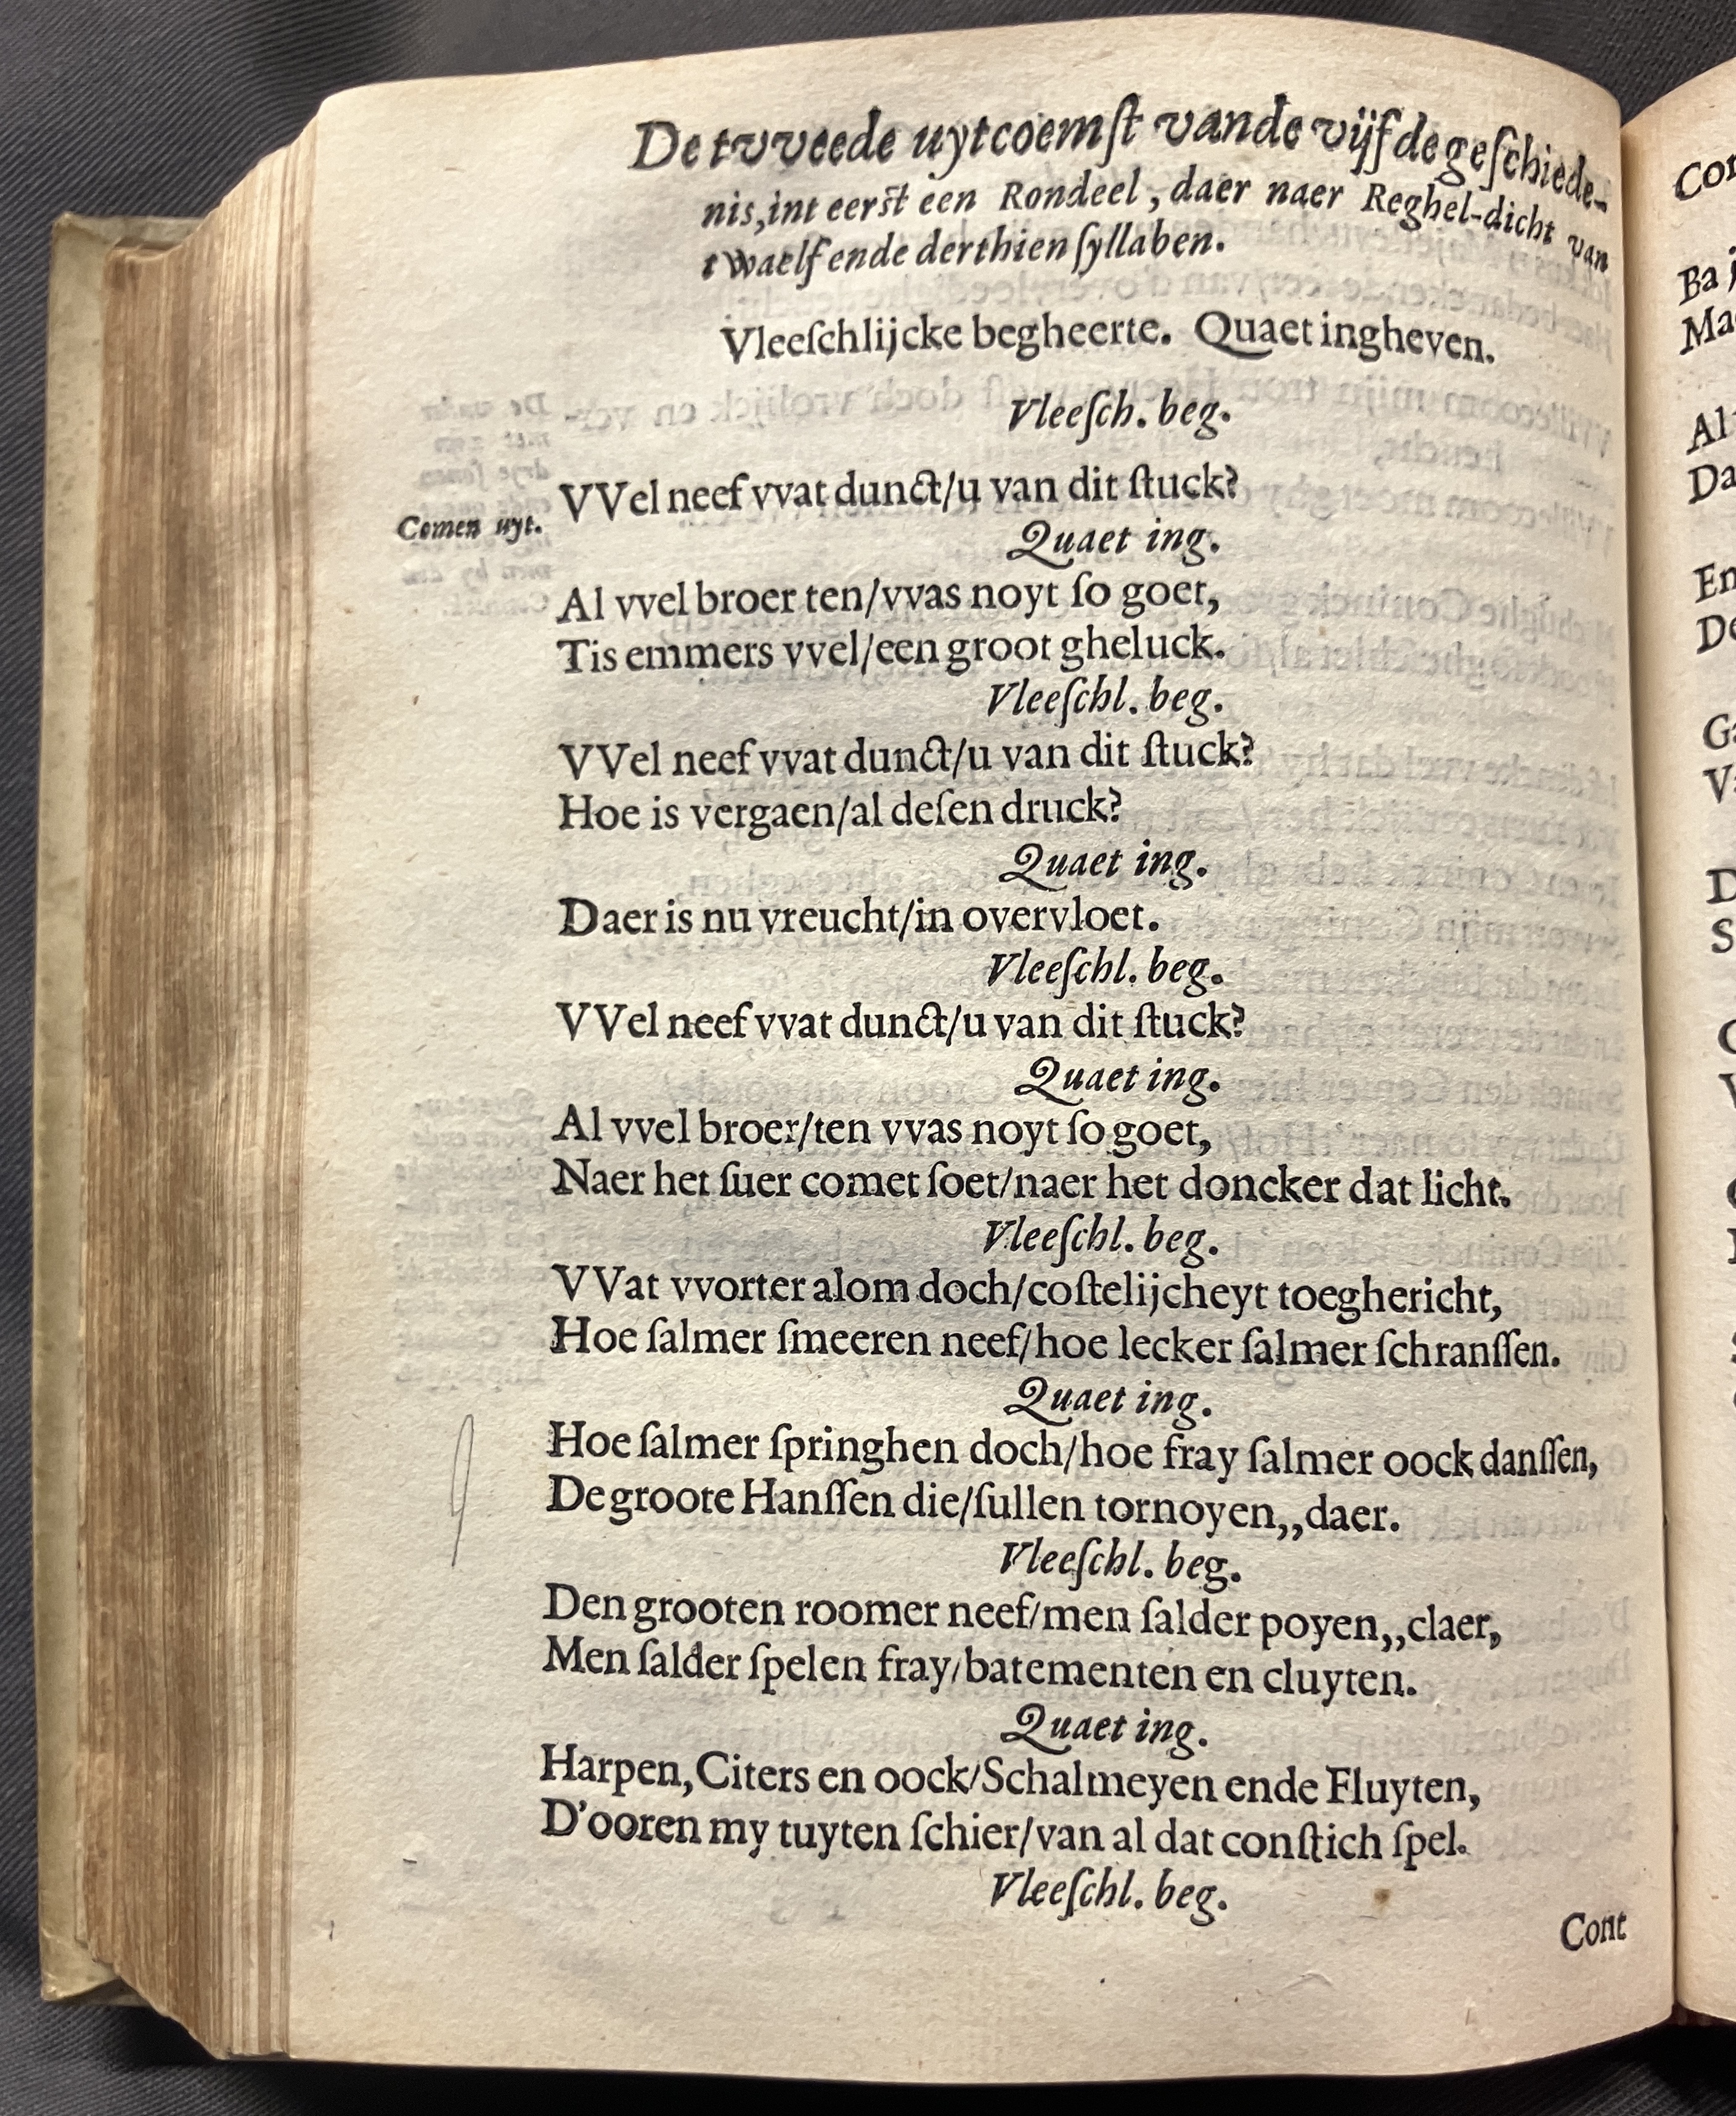 De tvveede uytcoemſt vande vijfde geſchiede-
nis, int eerſt een Rondeel, daer naer Reghel-dicht van
twaelf ende derthien ſyllaben.
Vleeſchlijcke begheerte. Quaet ingheven.
Vleeſch. beg.
VVel neef vvat dunct/u van dit ſtuck?
Comen uyt.
Quaet ing.
Al vvel broer ten/vvas noyt ſo goet,
Tis emmers vvel/een groot gheluck.
Vleeſchl. beg.
VVel neef vvat dunct/u van dit ſtuck?
Hoe is vergaen/al deſen druck?
Quaet ing.
Daer is nu vreucht/in overvloet.
Vleeſchl. beg.
VVel neef vvat dunct/u van dit ſtuck?
Quaet ing.
Al vvel broer/ten vvas noyt ſo goet,
Naer het ſuer comet ſoet/naer het doncker dat licht.
Vleeſchl. beg.
VVat vvorter alom doch/coſtelijcheyt toeghericht,
Hoe ſalmer ſmeeren neef/hoe lecker ſalmer ſchranſſen.
Quaet ing.
Hoe ſalmer ſpringhen doch/hoe fray ſalmer oock danſſen,
De groote Hanſſen die/ſullen tornoyen,,daer.
Vleeſchl. beg.
Den grooten roomer neef/men ſalder poyen,,claer,
Men ſalder ſpelen fray/batementen en cluyten.
Quaet ing.
Harpen, Citers en oock/Schalmeyen ende Fluyten,
D'ooren my tuyten ſchier/van al dat conſtich ſpel.
Vleeſchl. beg.
Cont
Ba
Al
Da
En
De